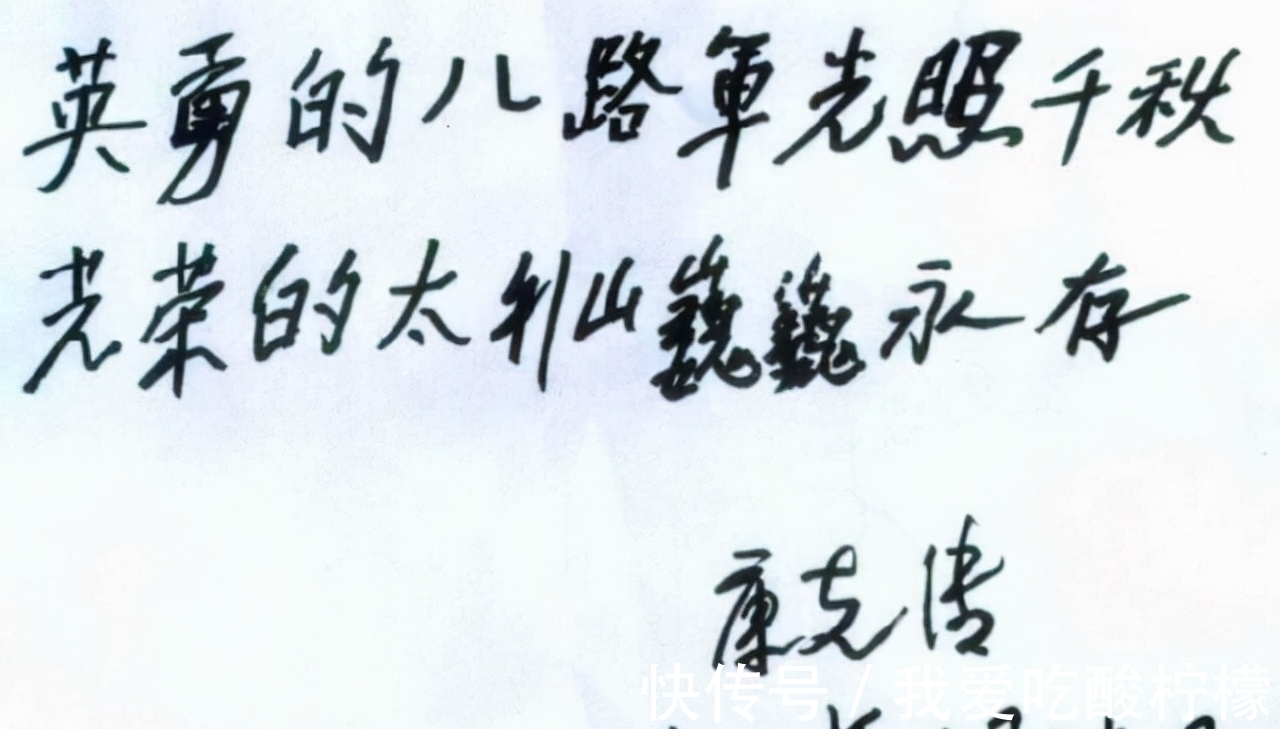 英勇的八路軍光照千秋
光荣的太行山巍巍永存
康克清
快传号 / 我爱吃酸柠檬